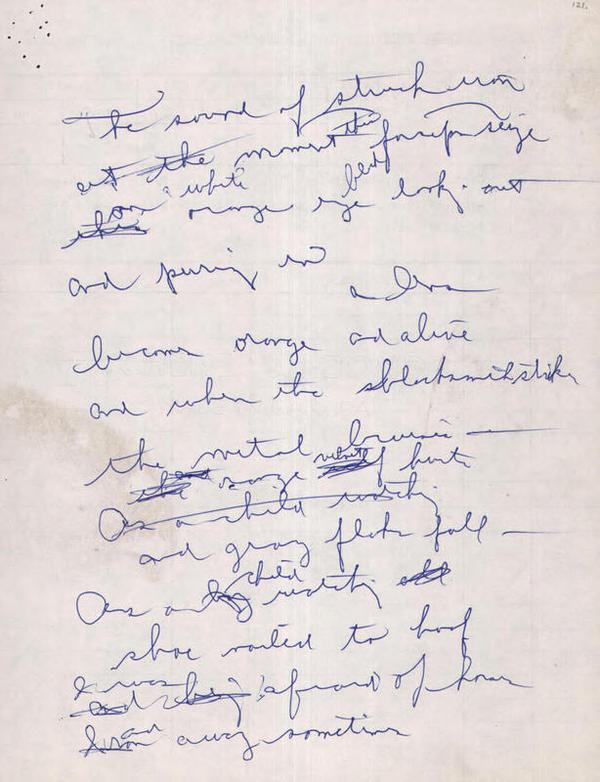 121.
The sound of struck iron
at the moment the forceps seize
an white blind
orange eye looking out
and peering in
a
becomes orange and alive
and when the blacksmith strikes
the metal bruises —
the orange velvet hurts
As a child watching
and gray flakes fall —
As a child watching
shoe nailed to hoof
I was afraid of horses
and away sometimes